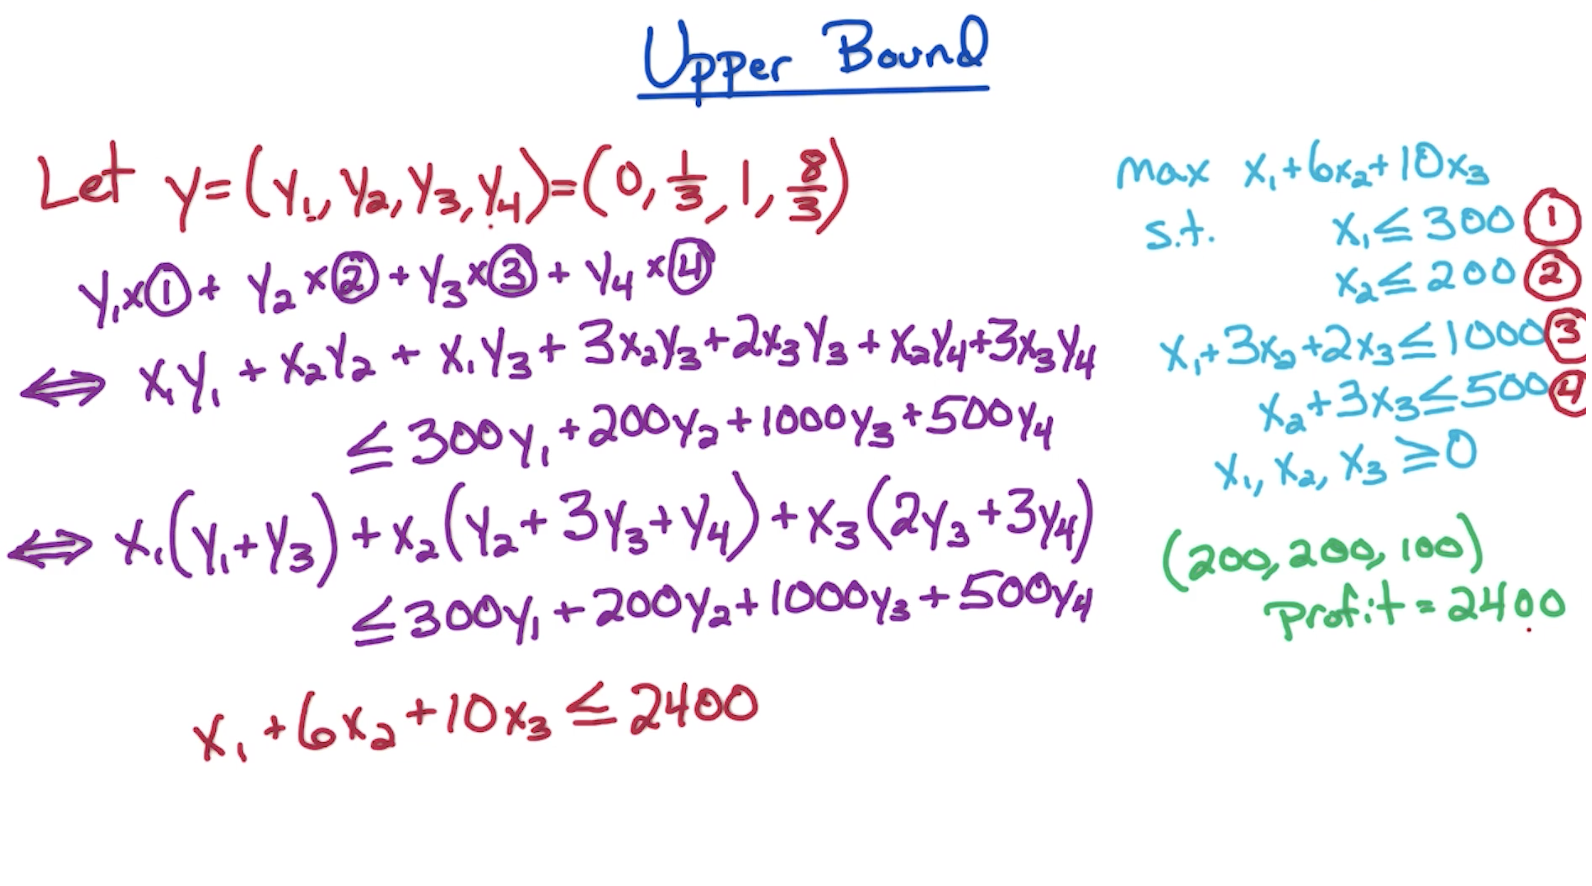 Upper Bound
Let y=(y₁, y₂, y₃, y₄)=(0, 1/3, 1, 8/3)
y₁×① + y₂×② + y₃×③ + y₄×④
⟺ x₁y₁ + x₂y₂ + x₁y₃ + 3x₂y₃+2x₃y₃+x₂y₄+3x₃y₄
≤ 300y₁+200y₂+1000y₃+500y₄
⟺ x₁(y₁+y₃)+x₂(y₂+3y₃+y₄)+x₃(2y₃+3y₄)
≤300y₁+200y₂+1000y₃+500y₄
x₁+6x₂+10x₃ ≤ 2400
max x₁+6x₂+10x₃
s.t. x₁≤300 ①
x₂≤200 ②
x₁+3x₂+2x₃≤1000 ③
x₂+3x₃≤500 ④
x₁, x₂, x₃ ≥0
(200, 200, 100)
Profit = 2400